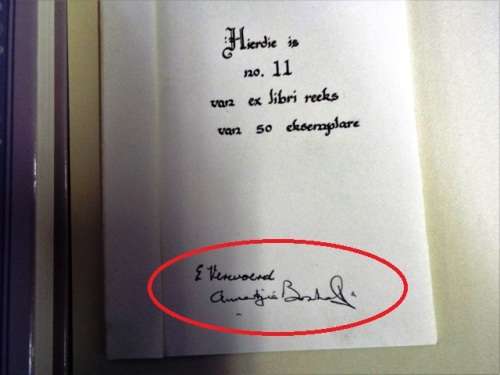 Hierdie is
no. 11
van ex libri reeks
van 50 eksemplare
E Verwoerd
Annatjie Boshoff